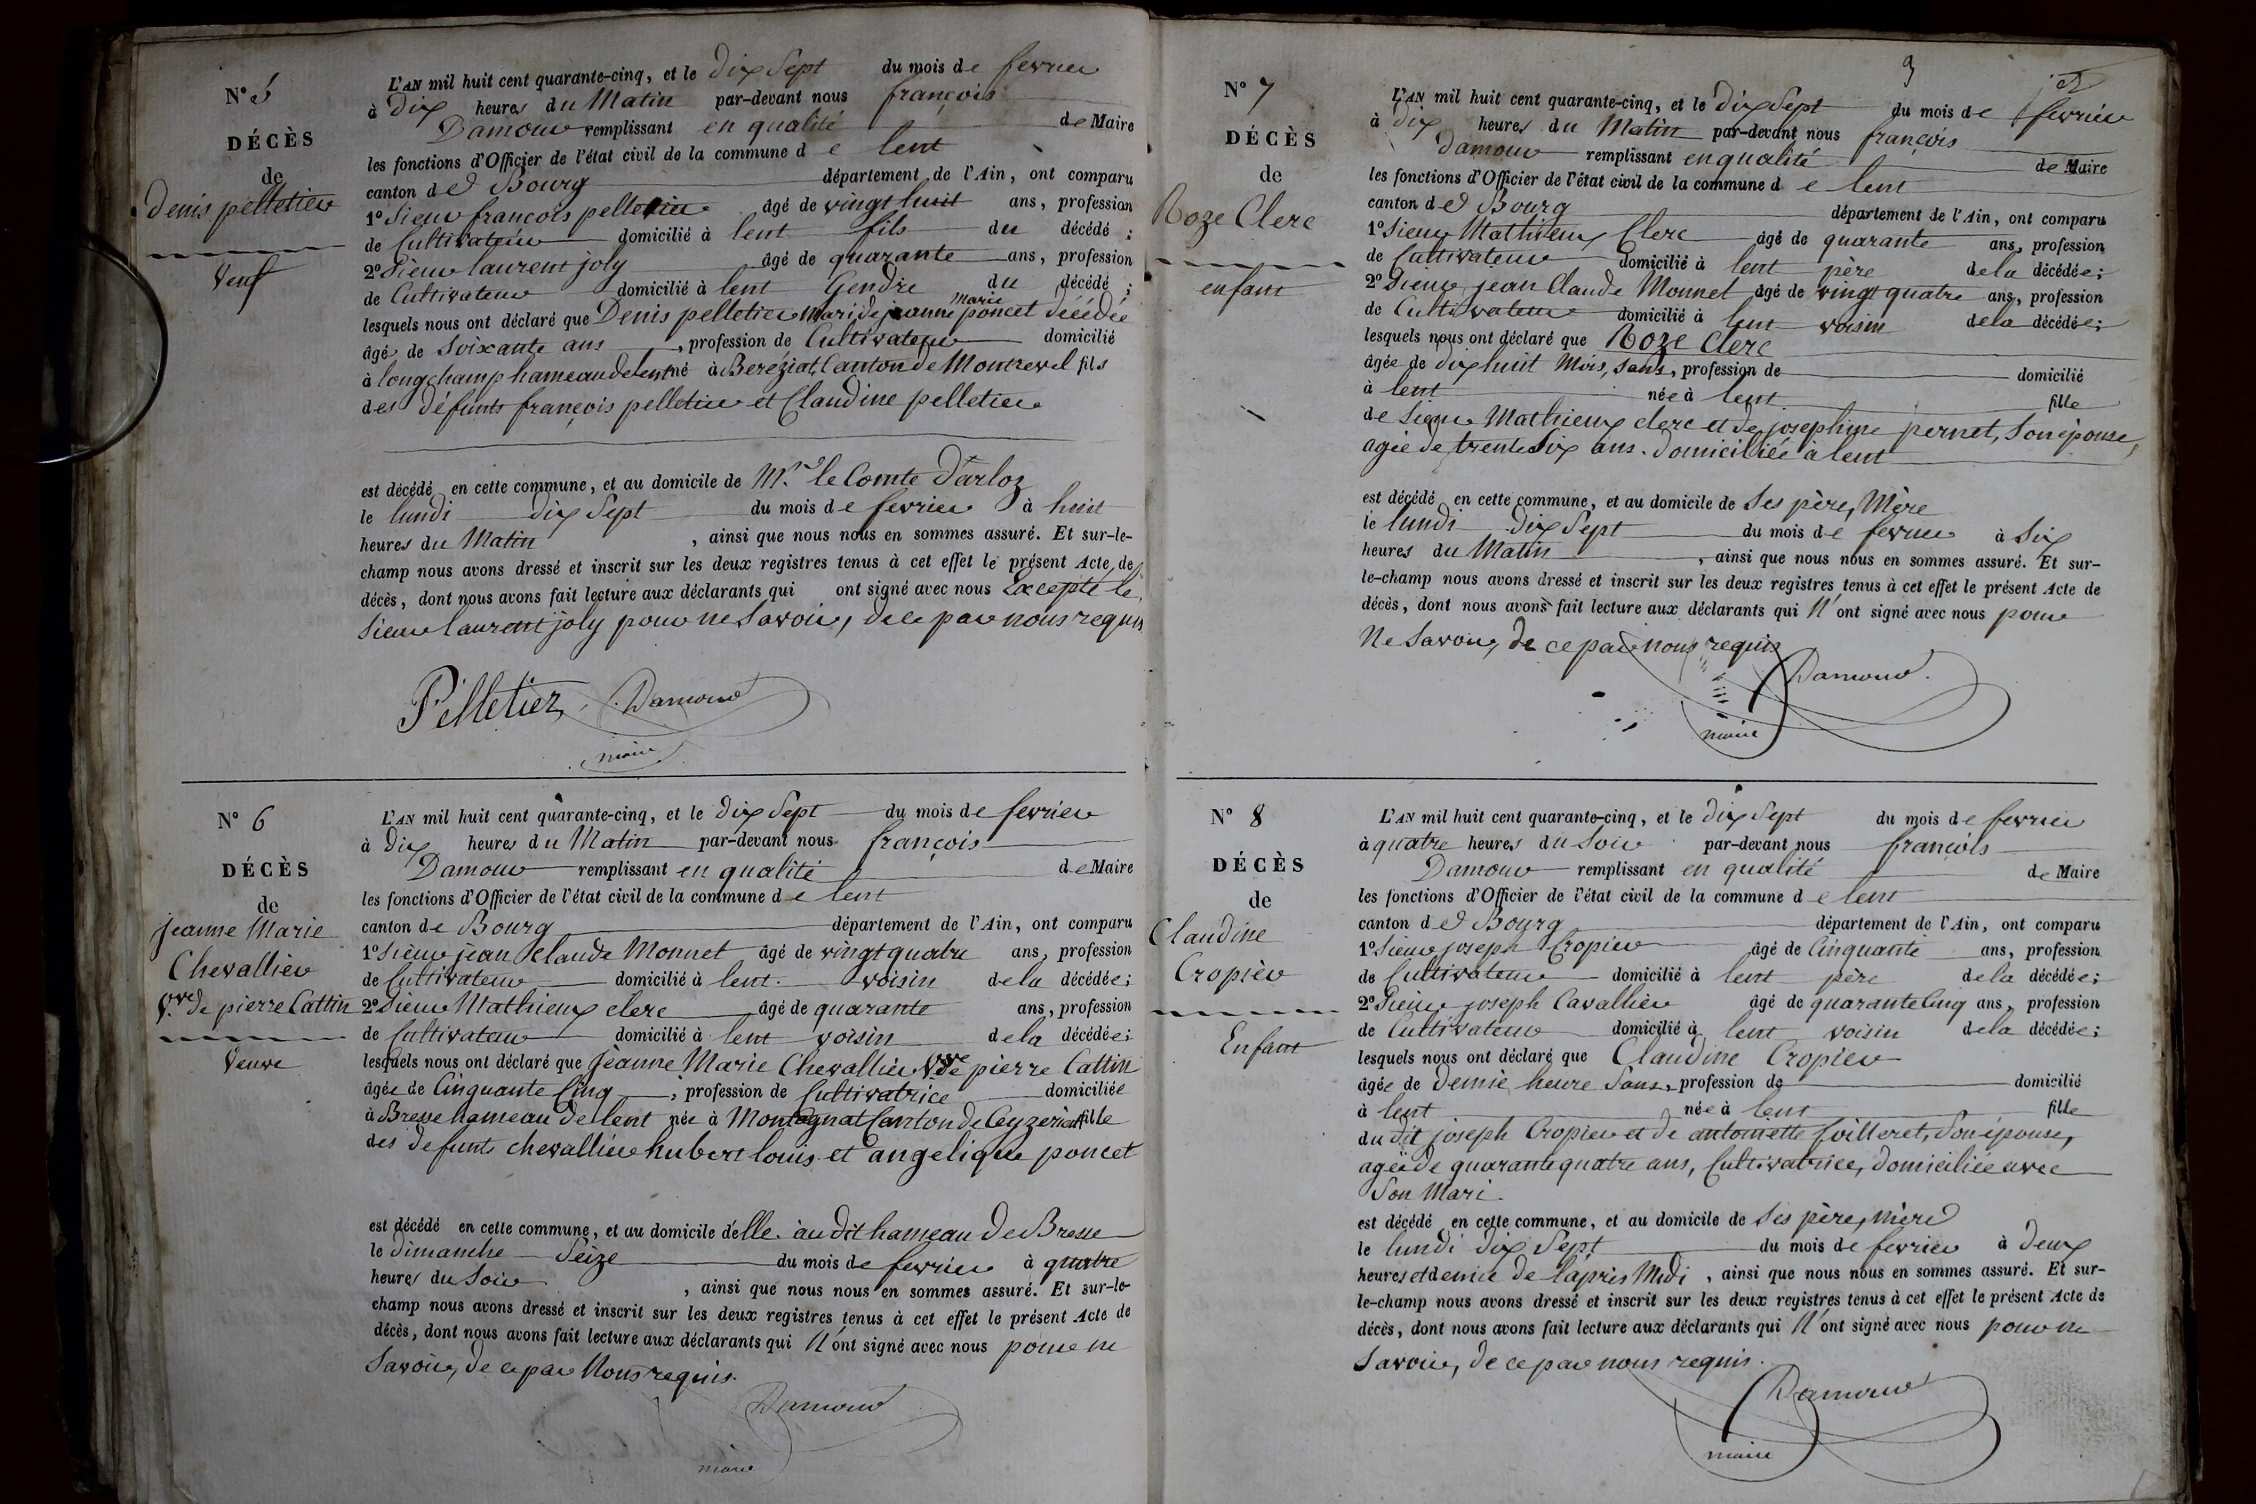 N° 5
DÉCÈS
de
Denis pelletier
Veuf
L'AN mil huit cent quarante-cinq, et le dix Sept du mois de fevrier
à Dix heures du Matin par-devant nous françois
Damour remplissant en qualité de Maire
les fonctions d'Officier de l'état civil de la commune de lent
canton de Bourg département de l'Ain, ont comparu
1° Sieur françois pelletier âgé de vingt huit ans, profession
de Cultivateur domicilié à lent fils du décédé ;
2° Sieur laurent joly âgé de quarante ans, profession
de Cultivateur domicilié à lent Gendre du décédé ;
lesquels nous ont déclaré que Denis pelletier Mari de jeanne Marie poncet décédée
âgé de Soixante ans, profession de Cultivateur domicilié
à longchamp hameau de lent né à Beréziat, Canton de Montrevel fils
des défunts françois pelletier et Claudine pelletier
est décédé en cette commune, et au domicile de Mr. le Comte D'arloz
le lundi dix Sept du mois de fevrier à huit
heures du Matin, ainsi que nous nous en sommes assuré. Et sur-le-
champ nous avons dressé et inscrit sur les deux registres tenus à cet effet le présent Acte de
décès, dont nous avons fait lecture aux déclarants qui ont signé avec nous Excepté le
Sieur laurent joly pour ne Savoir, de ce par nous requis
Pelletier Damour
maire
N° 6
DÉCÈS
de
jeanne Marie
Chevallier
Vve de pierre Cattin
Veuve
L'AN mil huit cent quarante-cinq, et le dix Sept du mois de fevrier
à Dix heures du Matin par-devant nous françois
Damour remplissant en qualité de Maire
les fonctions d'Officier de l'état civil de la commune de lent
canton de Bourg département de l'Ain, ont comparu
1° Sieur jean Claude Monnet âgé de vingt quatre ans, profession
de Cultivateur domicilié à lent. voisin de la décédée ;
2° Sieur Mathieux clerc âgé de quarante ans, profession
de Cultivateur domicilié à lent voisin de la décédée ;
lesquels nous ont déclaré que jeanne Marie Chevallier Vve de pierre Cattin
âgée de Cinquante Cinq, profession de Cultivatrice domiciliée
à Bresse hameau de lent née à Montagnat Canton de Ceyzeriat fille
des défunts chevallier hubert louis et angelique poncet
est décédé en cette commune, et au domicile d'elle. au dit hameau de Bresse
le dimanche Seize du mois de fevrier à quatre
heures du Soir, ainsi que nous nous en sommes assuré. Et sur-le-
champ nous avons dressé et inscrit sur les deux registres tenus à cet effet le présent Acte de
décès, dont nous avons fait lecture aux déclarants qui N'ont signé avec nous pour ne
Savoir, de ce par Nous requis.
Damour
maire
3
N° 7
DÉCÈS
de
Roze Clerc
enfant
L'AN mil huit cent quarante-cinq, et le dix Sept du mois de fevrier
à dix heures du Matin par-devant nous françois
Damour remplissant en qualité de Maire
les fonctions d'Officier de l'état civil de la commune de lent
canton de Bourg département de l'Ain, ont comparu
1° Sieur Mathieux Clerc âgé de quarante ans, profession
de Cultivateur domicilié à lent père de la décédée ;
2° Sieur jean Claude Monnet âgé de vingt quatre ans, profession
de Cultivateur domicilié à lent voisin de la décédée ;
lesquels nous ont déclaré que Roze Clerc
âgée de dix huit Mois, Sans, profession de domicilié
à lent née à lent fille
de Sieur Mathieux clerc et de josephine pernet, Son épouse,
agée de trente Six ans. domiciliée à lent
est décédé en cette commune, et au domicile de Ses père, Mère
le lundi dix Sept du mois de fevrier à Six
heures du Matin, ainsi que nous nous en sommes assuré. Et sur-
le-champ nous avons dressé et inscrit sur les deux registres tenus à cet effet le présent Acte de
décès, dont nous avons fait lecture aux déclarants qui N'ont signé avec nous pour
Ne Savoir, de ce par nous requis
Damour
maire
N° 8
DÉCÈS
de
Claudine
Cropier
Enfant
L'AN mil huit cent quarante-cinq, et le dix Sept du mois de fevrier
à quatre heures du Soir par-devant nous françois
Damour remplissant en qualité de Maire
les fonctions d'Officier de l'état civil de la commune de lent
canton de Bourg département de l'Ain, ont comparu
1° Sieur joseph Cropier âgé de Cinquante ans, profession
de Cultivateur domicilié à lent père de la décédée ;
2° Sieur joseph Cavallier âgé de quarante Cinq ans, profession
de Cultivateur domicilié à lent voisin de la décédée ;
lesquels nous ont déclaré que Claudine Cropier
âgée de demie heure Sans, profession de domicilié
à lent née à lent fille
du dit joseph Cropier et de antoinette Joilleret, Son épouse,
agée de quarante quatre ans, Cultivatrice, domiciliée avec
Son Mari.
est décédé en cette commune, et au domicile de Ses père, Mère
le lundi dix Sept du mois de fevrier à Deux
heures et demie de l'après Midi, ainsi que nous nous en sommes assuré. Et sur-
le-champ nous avons dressé et inscrit sur les deux registres tenus à cet effet le présent Acte de
décès, dont nous avons fait lecture aux déclarants qui N'ont signé avec nous pour ne
Savoir, de ce par nous requis.
Damour
maire